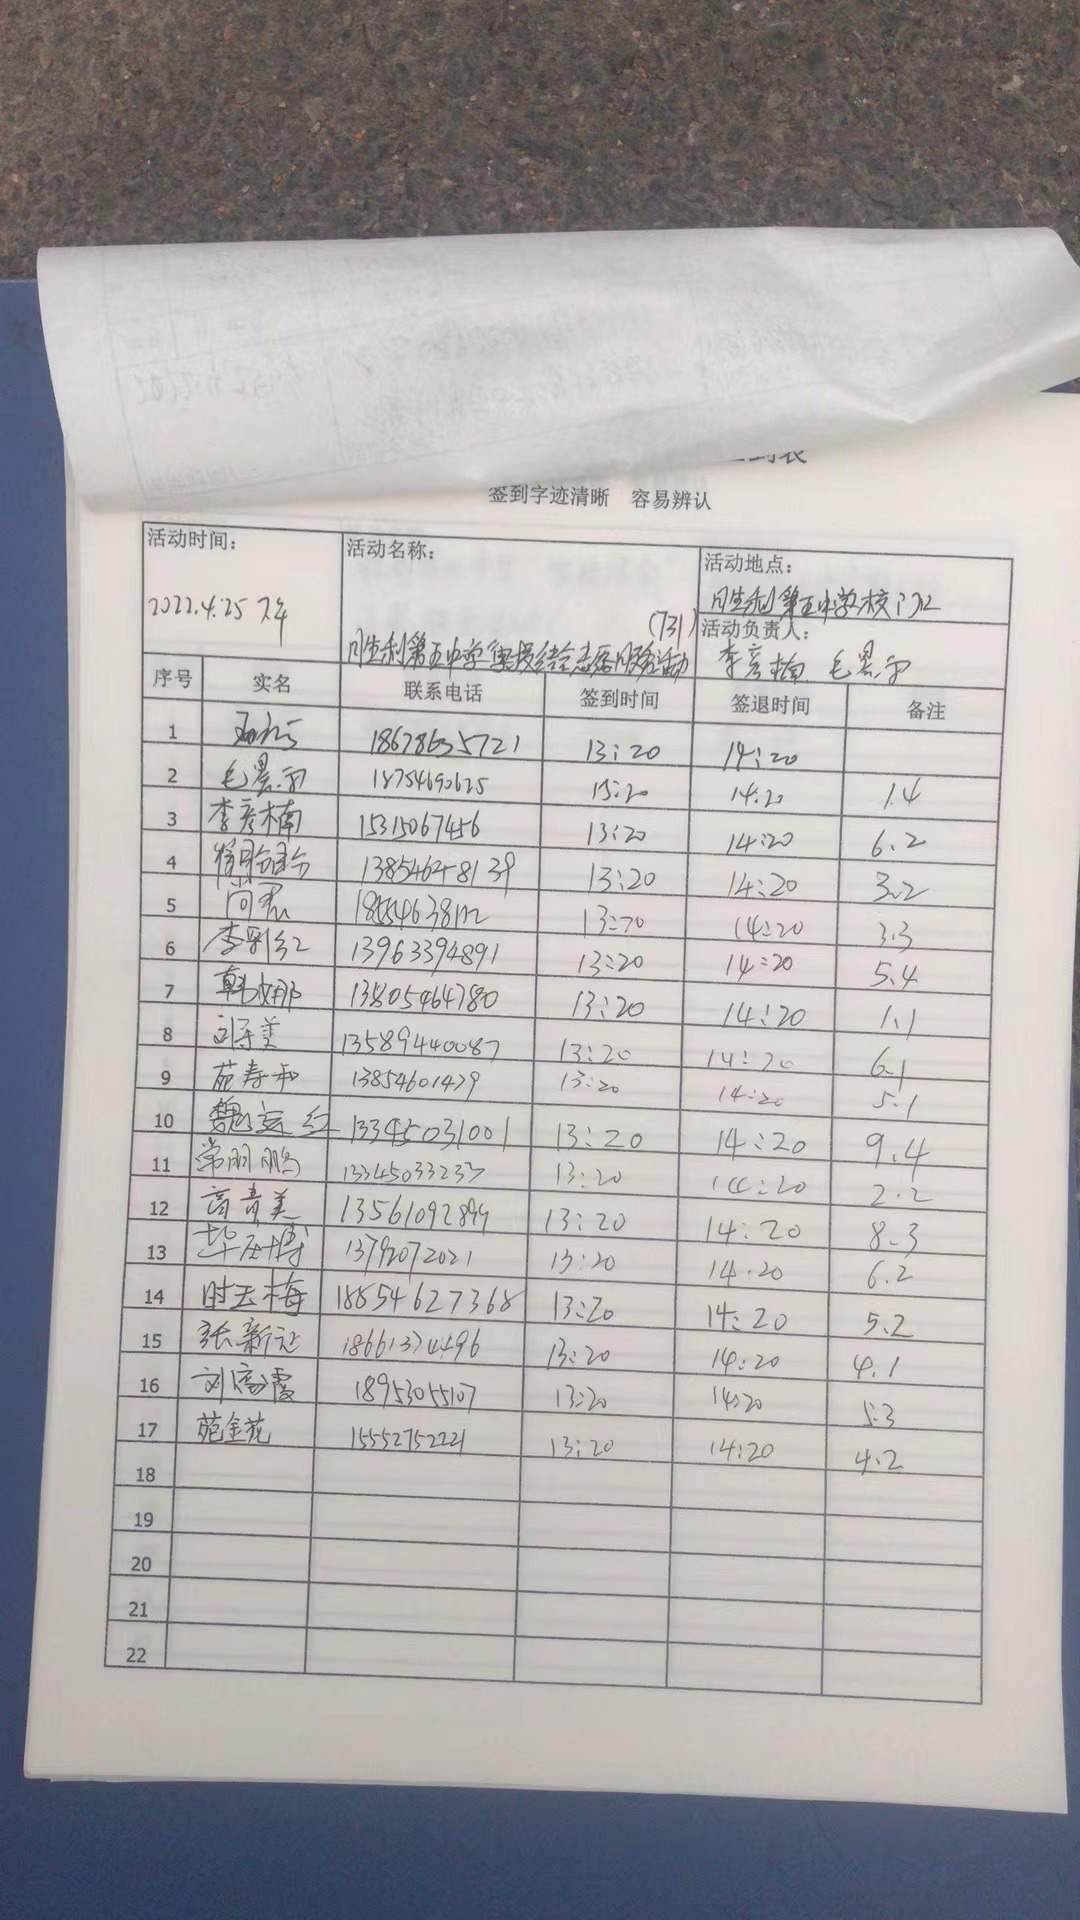 签到字迹清晰 容易辨认
活动时间： 活动名称： 活动地点：
2022.4.25 下午 第五中学校门口
(731) 活动负责人：
第五中学 活动 李彦楠
序号 实名 联系电话 签到时间 签退时间 备注
1 13:20 14:20
2 18754690625 13:20 14:20 1.4
3 李彦楠 15315067456 13:20 14:20 6.2
4 13854628139 13:20 14:20 3.2
5 尚君 13:20 14:20 3.3
6 李彩红 13963394891 13:20 14:20 5.4
7 韩娜 13805464780 13:20 14:20 1.1
8 13589440087 13:20 14:20 6.1
9 苑寿和 13854601479 13:20 14:20 5.1
10 魏运红 13345031001 13:20 14:20 9.4
11 常朋鹏 13345033233 13:20 14:20 2.2
12 高青美 13561092899 13:20 14:20 8.3
13 13792072021 13:20 14:20 6.2
14 时玉梅 18854627368 13:20 14:20 5.2
15 张新 18661374496 13:20 14:20 4.1
16 18953055107 13:20 14:20 5.3
17 苑金花 15552752221 13:20 14:20 4.2
18
19
20
21
22